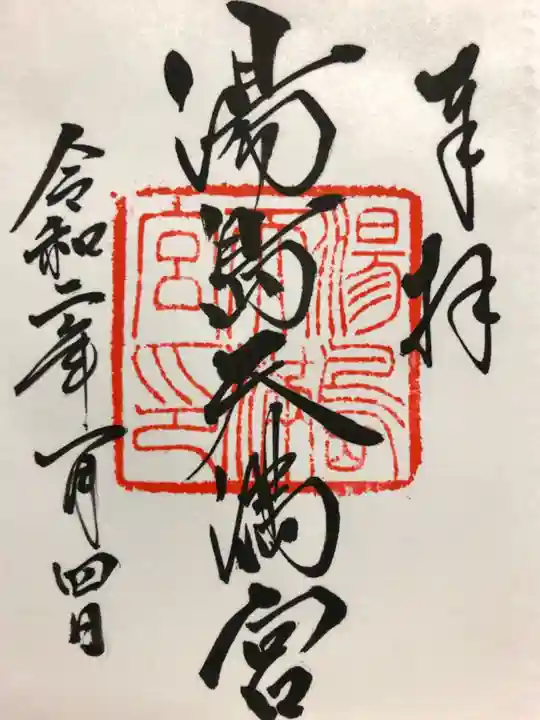 奉拝
湯島天満宮
湯島天満宮印
令和二年一月四日